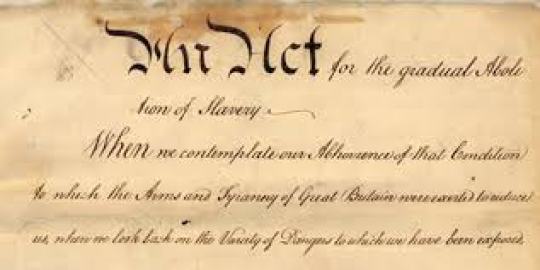 An Act for the gradual Aboli
tion of Slavery
When we contemplate our Abhorence of that Condition
to which the Arms and Tyranny of Great Britain were exerted to reduce
us, when we look back on the Variety of Dangers to which we have been exposed,